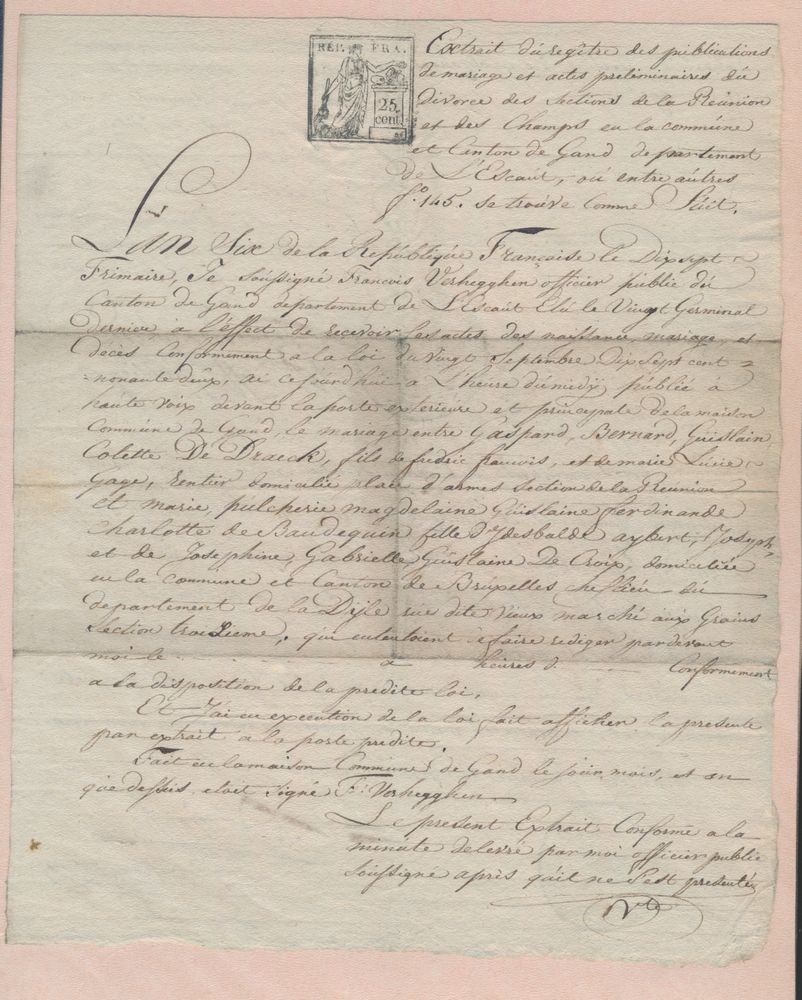 REP. FRA.
25
cent
Extrait du regître des publications
de mariage et actes preliminaires du
Divorce des Sections de la Reunion
et des Champs en la commune
et Canton de Gand departement
de L'Escaut, où entre autres
f.° 145. se trouve Comme Suit.
L'an Six de la Republique Française le Dix sept
Frimaire, Je Soussigné Francois Verhegghen officier public du
Canton de Gand departement de L'Escaut Elû le Vingt Germinal
dernier à l'effect de recevoir les actes des naissance, mariage, et
décès Conformement a la loi du Vingt Septembre Dix Sept cent
nonante deux, ai cejourd'hui a L'heure du midÿ publié à
haute voix devant la porte exterieure et principale de la maison
Commune de Gand, le mariage entre Gaspard, Bernard, Guislain,
Colette De Draeck, fils de frederic francois, et de marie Lucie
Gage, rentier domicilié place d'armes Section de la Reunion
et marie, pulcherie magdelaine Guislaine ferdinande
charlotte de Baudequin fille d'Ydesbalde aybert, Joseph
et de Josephine, Gabrielle Guislaine De Croix, domiciliée
en la Commune et Canton de Bruxelles cheflieu du
departement de la Dijle rue dite Vieux marché aux Grains
Section troisieme, qui entendoient à faire rediger pardevant
moi le a heures d. Conformement
a la disposition de la predite loi.
Et J'ai en execution de la loi fait afficher la presente
par extrait a la porte predite.
Fait en la maison Commune de Gand le jour, mois, et an
que dessus etoit Signé F: Verhegghen
Le present Extrait Conforme a la
minute delivré par moi officier public
Soussigné après qu'il ne S'est presenté